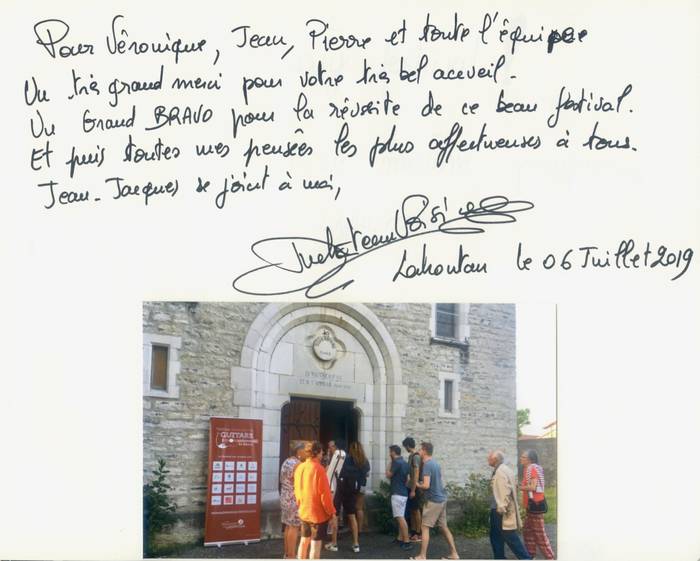 Pour Véronique, Jean, Pierre et toute l'équipe
Un très grand merci pour votre très bel accueil.
Un Grand BRAVO pour la réussite de ce beau festival.
Et puis toutes mes pensées les plus affectueuses à tous.
Jean-Jacques se joint à moi,
Lahontan le 06 Juillet 2019
GUITARE